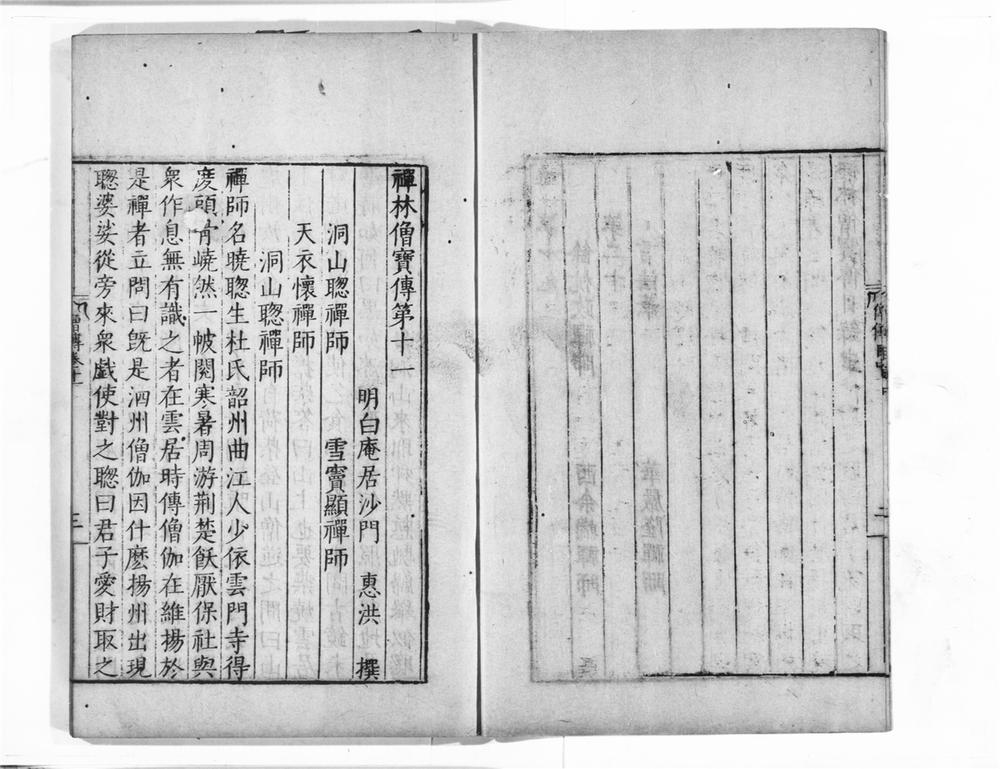 禪林僧寶傳第十一
明白庵居沙門 惠洪 撰
洞山聦禪師 雪竇顯禪師
天衣懷禪師
洞山聦禪師
禪師名曉聦生杜氏韶州曲江人少依雲門寺得
度頭骨嶢然一帔閱寒暑周游荆楚飫厭保社與
衆作息無有識之者在雲居時傳僧伽在維揚於
是禪者立問曰旣是泗州僧伽因什麽揚州出現
聦婆娑從旁來衆戯使對之聦曰君子愛財取之
僧傳卷十一